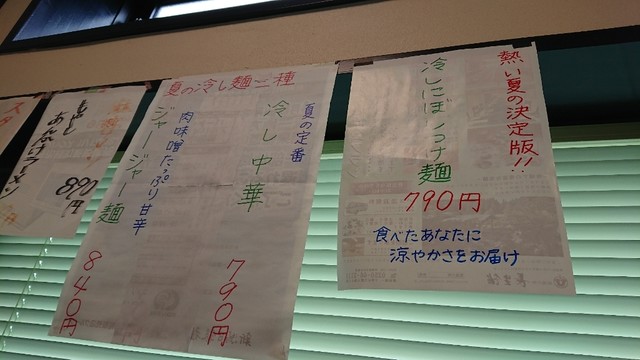 熱い夏の決定版!!
冷しにぼしつけ麺
790円
食べたあなたに
涼やかさをお届け
夏の冷し麺二種
夏の定番
冷し中華
790円
肉味噌たっぷり甘辛
ジャージャー麺
840円
890円
スタ